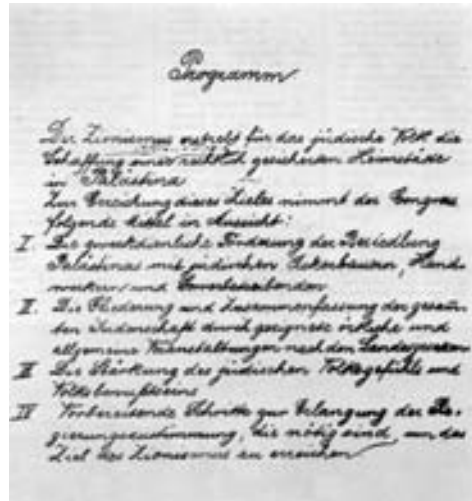 Programm
Der Zionismus erstrebt für das jüdische Volk die
Schaffung einer rechtlich gesicherten Heimstätte
in Palästina
Zur Erreichung dieses Zieles nimmt der Congress
folgende Mittel in Aussicht:
I. Die zweckdienliche Förderung der Besiedlung
Palästinas mit jüdischen Ackerbauern, Hand-
werkern und Gewerbetreibenden
II. Die Gliederung und Zusammenfassung der gesam-
ten Judenschaft durch geeignete örtliche und
allgemeine Veranstaltungen nach den Landesgesetzen
III Die Stärkung des jüdischen Volksgefühls und
Volksbewußtseins
IV Vorbereitende Schritte zur Erlangung der Re-
gierungszustimmung, die nötig sind, um das
Ziel des Zionismus zu erreichen